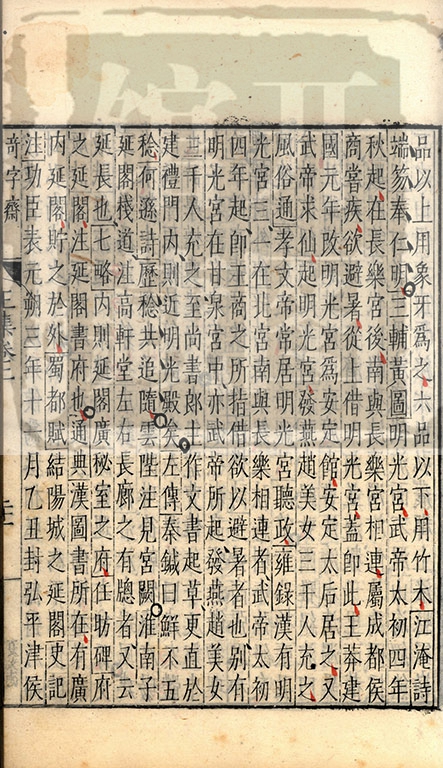 品以上用象牙爲之六品以下用竹木江淹詩
端笏奉仁明三輔黃圖明光宮武帝太初四年
秋起在長樂宮後南與長樂宮相連屬成都侯
商嘗疾欲避暑從上借明光宮蓋卽此王莽建
國元年改明光宮爲安定館安定太后居之又
武帝求仙起明光宮發燕趙美女三千人充之
風俗通孝文帝常居明光宮聽政雍錄漢有明
光宮三一在北宮南與長樂相連者武帝太初
四年起卽王商之所借欲以避暑者也别有
明光宮在甘泉宮中亦武帝所起發燕趙美女
三千人充之至尚書郎主作文書起草更直於
建禮門內則近明光殿矣左傳秦鍼曰鮮不五
稔何遜詩歷稔共追隨雲陛注見宮闕淮南子
延閣棧道注高軒堂左右長廊之有牕者又云
延長也七略內則延閣廣秘室之府任昉碑府
之延閣注延閣書府也通典漢圖書所在有廣
內延閣貯之於外蜀都賦結陽城之延閣史記
注功臣表元朔三年十一月乙丑封弘平津侯
奇字齋